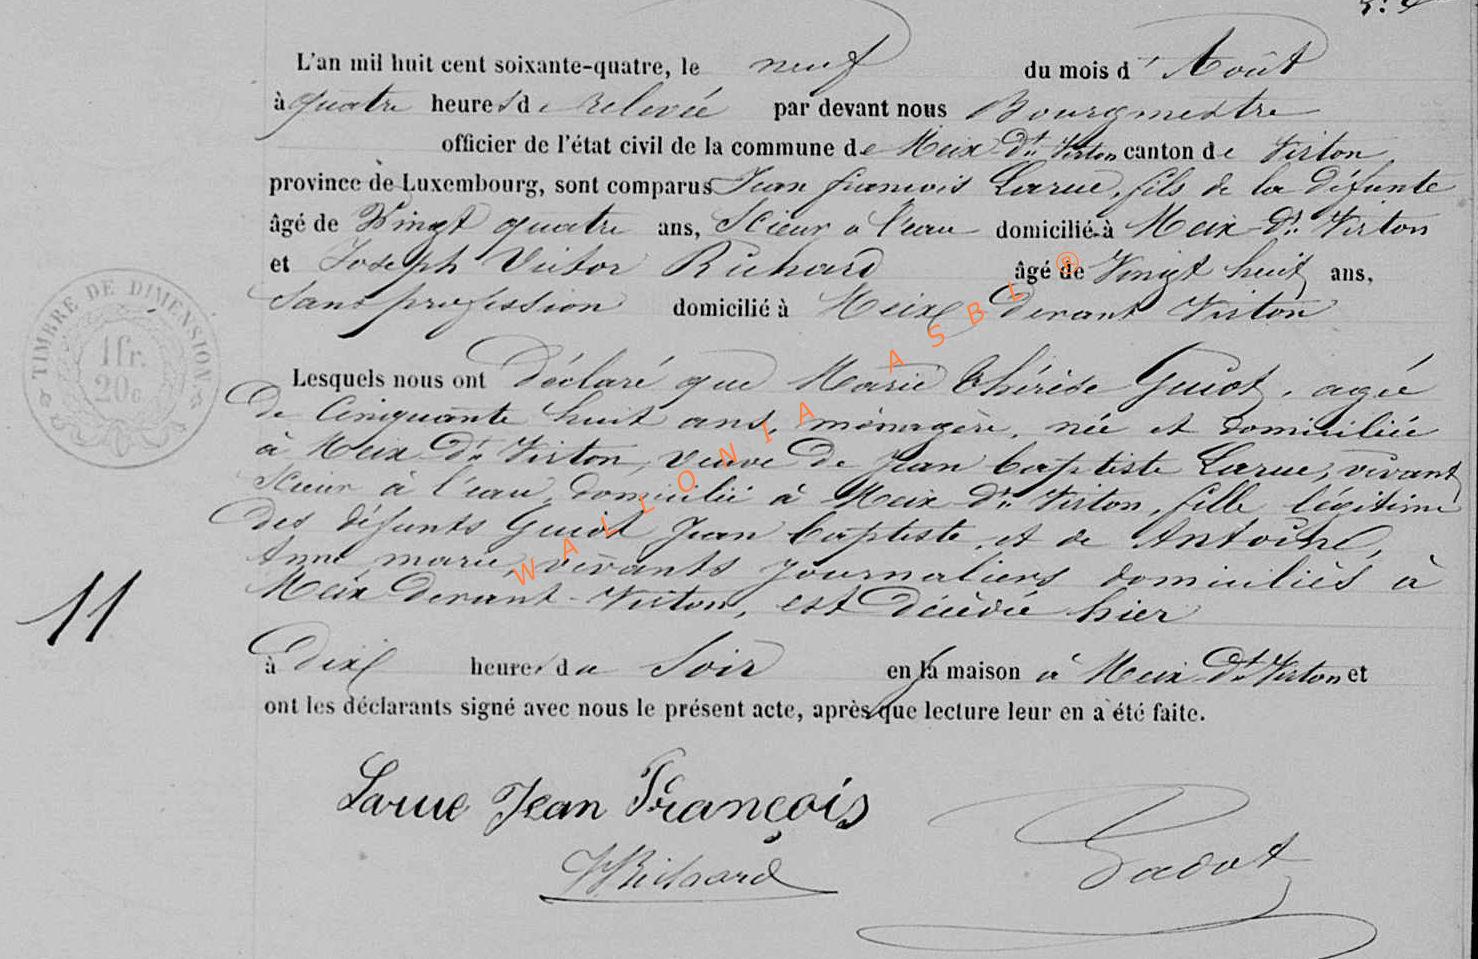 L'an mil huit cent soixante-quatre, le neuf du mois d'Août
à quatre heures de relevée par devant nous Bourgmestre
officier de l'état civil de la commune de Meix-dt Virton canton de Virton
province de Luxembourg, sont comparus Jean françois Larue, fils de la défunte
âgé de Vingt quatre ans, Scieur à l'eau domicilié à Meix-dt Virton
et Joseph Victor Richard âgé de Vingt huit ans,
Sans profession domicilié à Meix devant Virton
TIMBRE DE DIMENSION
1fr.
20c.
Lesquels nous ont déclaré que Marie Thérèse Guiot, agée
de Cinquante huit ans, ménagère, née et domiciliée
à Meix dt Virton, veuve de Jean baptiste Larue, vivant
Scieur à l'eau, domicilié à Meix dt Virton, fille légitime
des défunts Guiot Jean baptiste et de Antoine,
Anne marie, vivants journaliers domiciliés à
Meix devant-Virton, est décédée hier
11
à dix heures du Soir en la maison à Meix dt Virton et
ont les déclarants signé avec nous le présent acte, après que lecture leur en a été faite.
Larue Jean François
VRichard
Gadot
WALLONIA ASBL ®